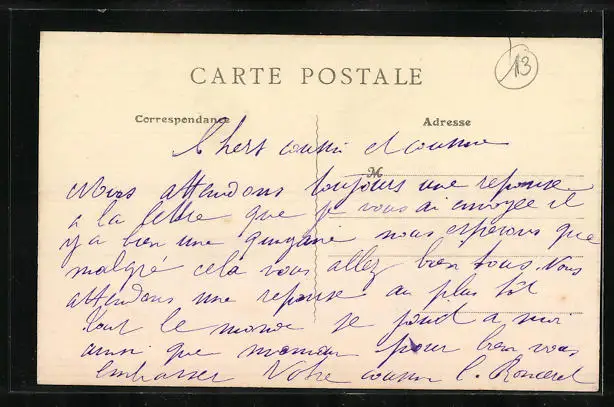 13
CARTE POSTALE
Correspondance
Adresse
Chers cousin et cousine
M
Nous attendons toujours une reponse
a la lettre que je vous ai envoyee il
y a bien une quinzaine nous esperons que
malgré cela vous allez bien tous. Nous
attendons une reponse au plus tôt
tout le monde se joint a moi
ainsi que maman pour bien vous
embrasser Votre cousin C.